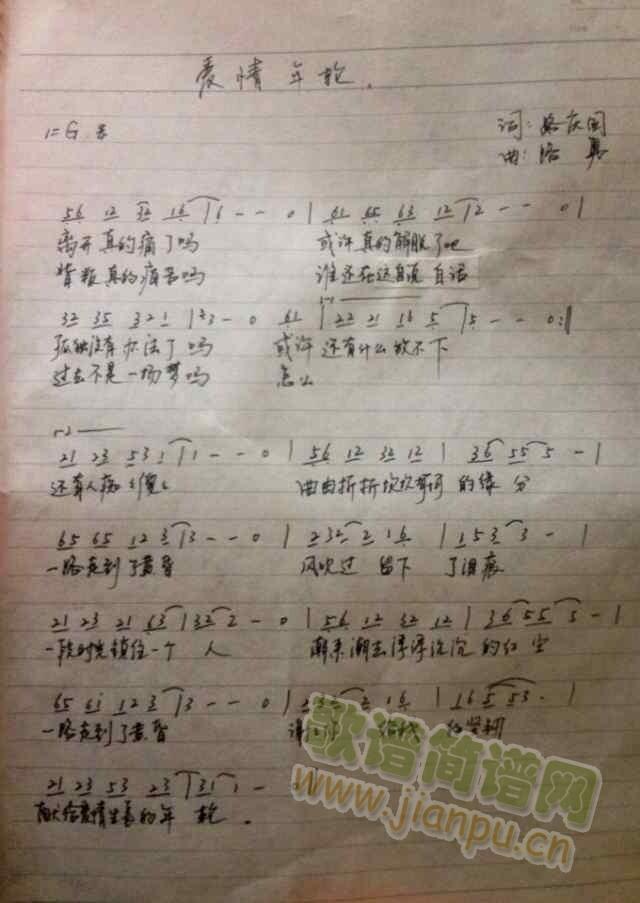 爱情年轮.
1=G
词: 庆国
曲: 洛
56 12 32 16 | 6 - - 0 | 61 65 63 12 | 2 - - 0 |
离开真的痛了吗 或许真的解脱了吧
背叛真的痛苦吗 谁还在这自说自话
32 35 32 1 | 23 - 0 61 | 22 21 16 5 | 5 - - 0 :|
孤独没有办法了吗 或许还有什么放不下
过去不是一场梦吗 怎么
21 23 53 1 | 1 - - 0 | 56 12 32 12 | 36 55 5 - |
还有人 曲曲折折坎坎 的缘分
65 65 12 3 | 3 - - 0 | 2 32 2 16 | 1 5 3 3 - |
一路走到了黄昏 风吹过 留下 了泪痕
21 23 21 63 | 32 2 - 0 | 56 12 32 12 | 36 55 5 - |
一段时光锁住一个人 潮来潮去浮浮沉沉的红尘
65 61 12 3 | 3 - - 0 |
一路走到了黄昏
21 23 53 23 | 31 1 -
献给爱情生长的年轮.
歌谱简谱网
www.jianpu.cn